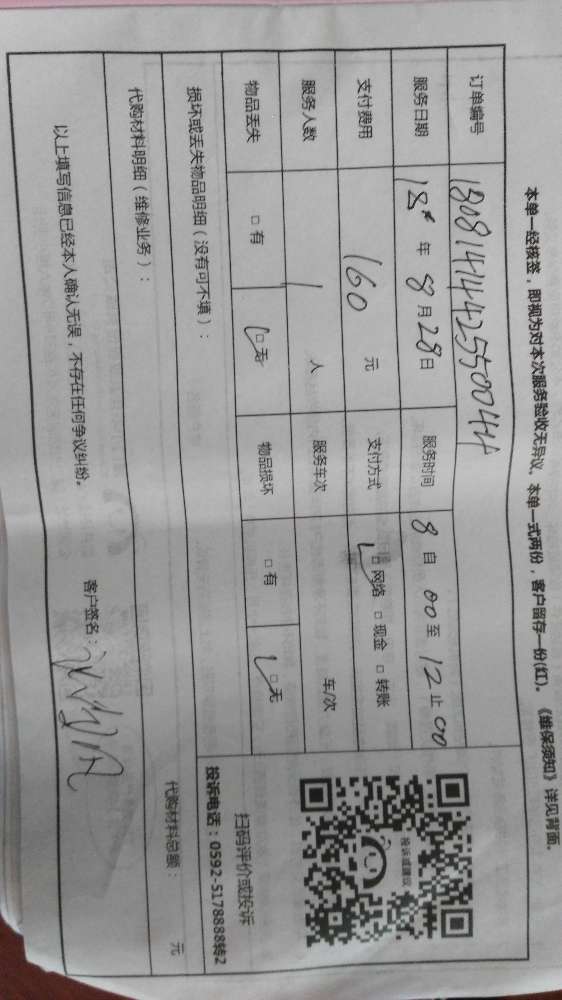 本单一经核签，即视为对本次服务验收无异议。本单一式两份，客户留存一份(红)。《维保须知》详见背面。
订单编号 180814144255004
服务日期 18年8月28日 服务时间 8自00至12止00
支付费用 160元 支付方式 □网络 □现金 □转账
服务人数 1人 服务车次 车/次
物品丢失 □有 □无 物品损坏 □有 □无
损坏或丢失物品明细（没有可不填）：
代购材料明细（维修业务）： 代购材料总额： 元
以上填写信息已经本人确认无误，不存在任何争议纠纷。 客户签名：
投诉或建议
扫码评价或投诉
投诉电话：0592-5178888转2